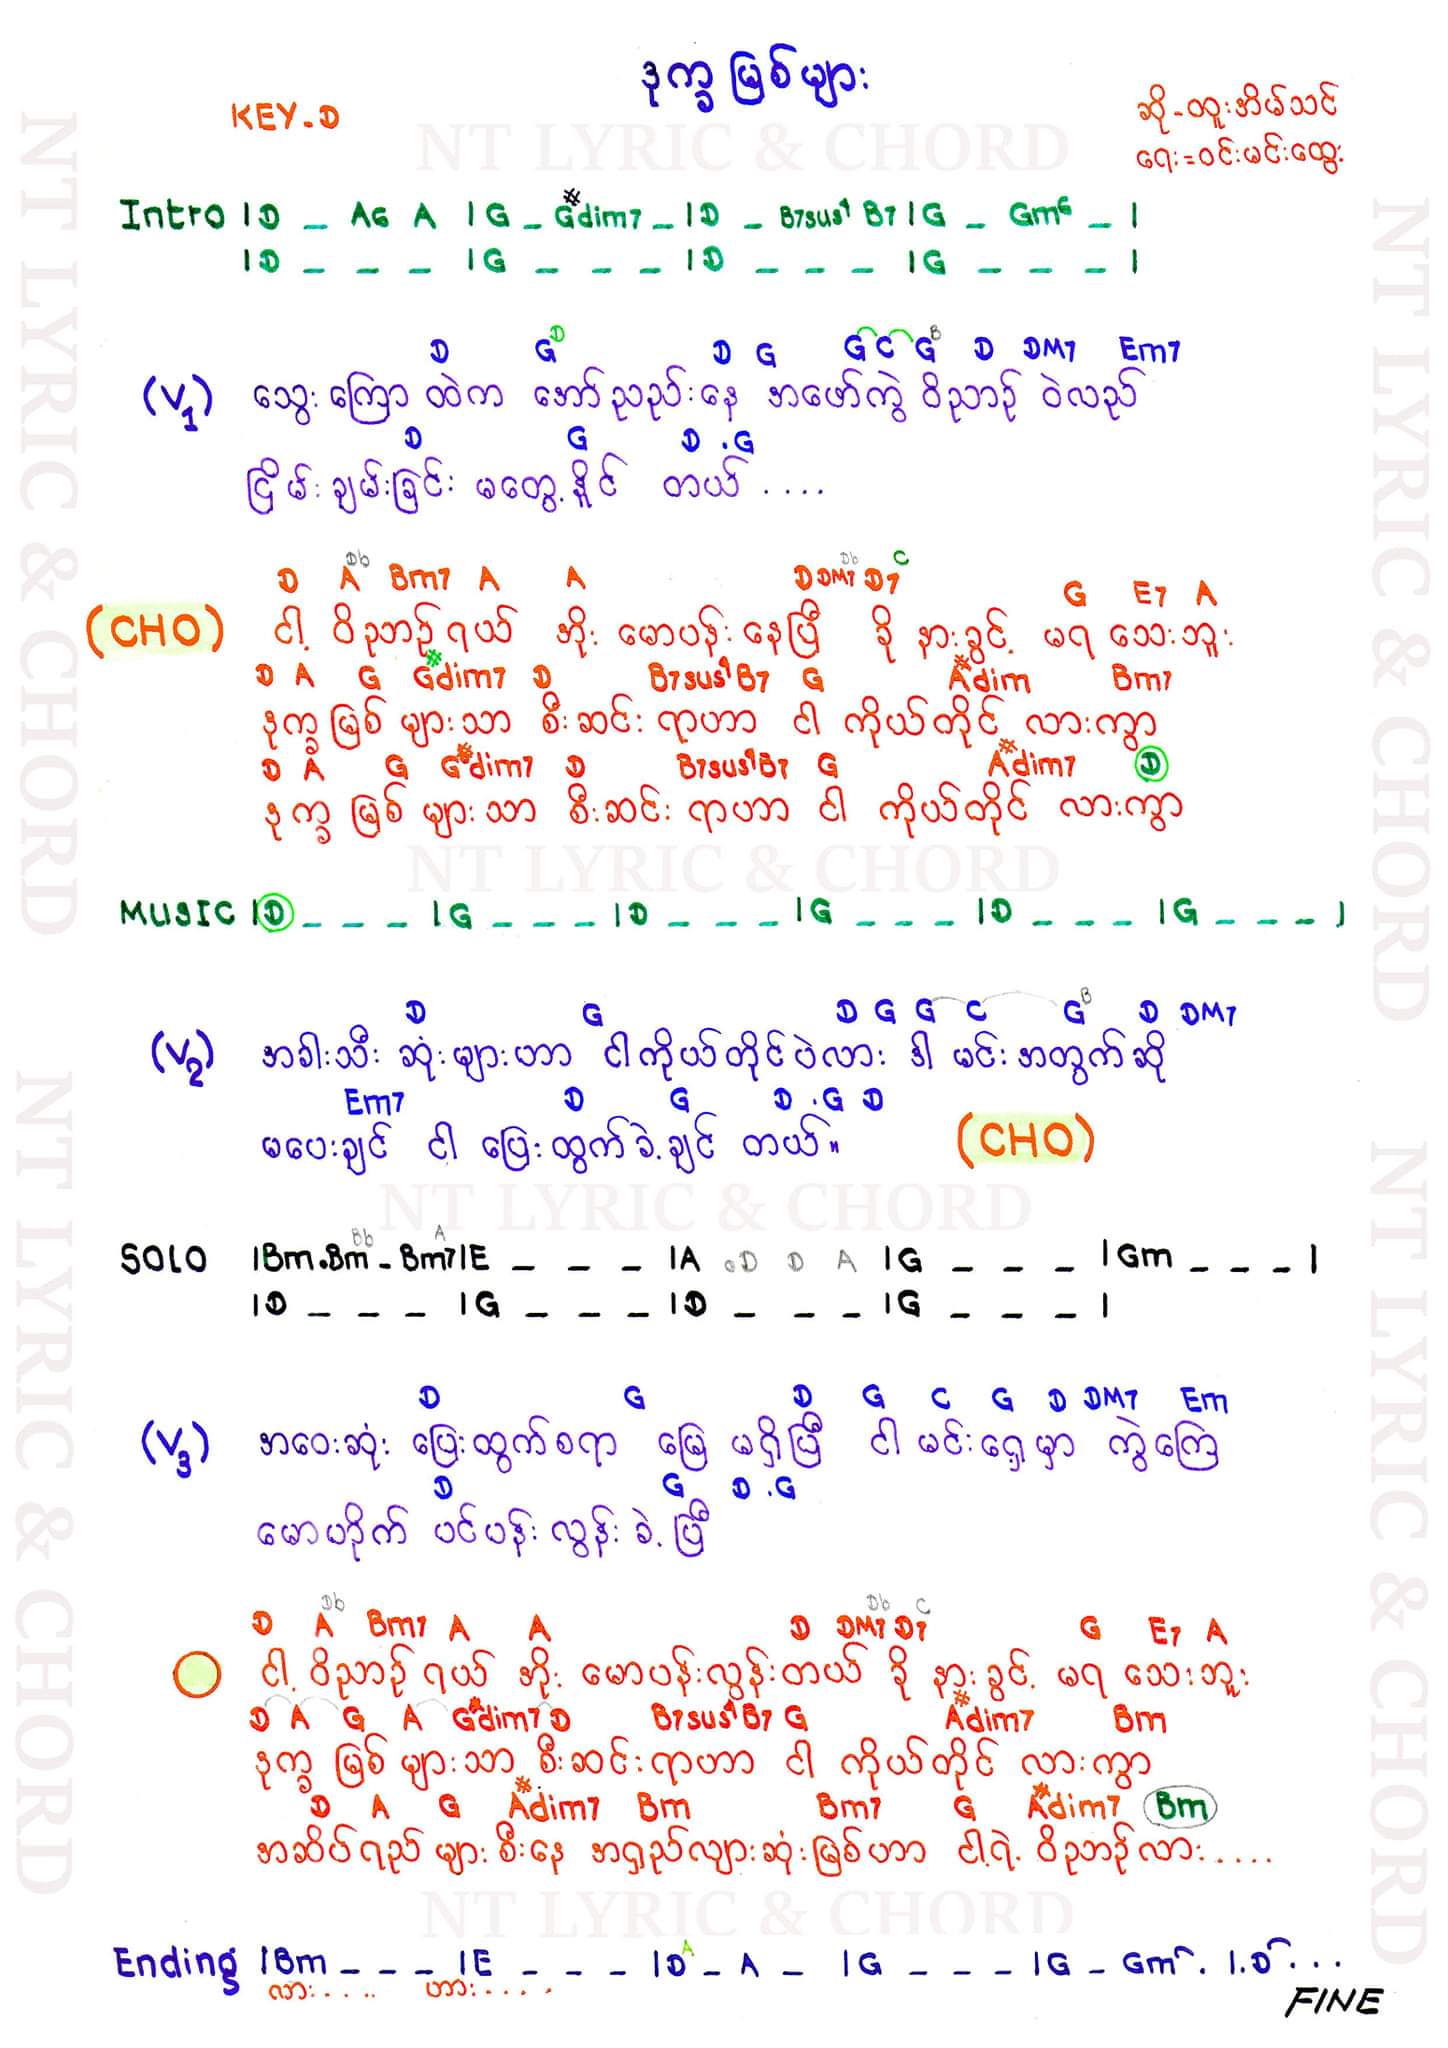 ဒုက္ခမြစ်များ
KEY-D
ဆို-ထူးအိမ်သင်
ရေး=ဝင်းမင်းထွေး
NT LYRIC & CHORD
Intro |D _ A6 A |G _ G#dim7 _ |D _ B7sus4 B7 |G _ Gm6 _ |
|D _ _ _ |G _ _ _ |D _ _ _ |G _ _ _ |
D G D D G G C G B D DM7 Em7
(V1) သွေးကြောထဲက အော်ညည်းနေ အဖော်ကွဲ ဝိညာဉ် ဝဲလည်
D G D . G
ငြိမ်းချမ်းခြင်း မတွေ့နိူင် တယ် ....
D A Db Bm7 A A D DM7 Db D7 C G E7 A
(CHO) ငါ့ ဝိညာဉ်ရယ် အိုး မောပန်းနေပြီ ခို နားခွင့် မရ သေးဘူး
D A G G#dim7 D B7sus4 B7 G A#dim Bm7
ဒုက္ခမြစ် များသာ စီးဆင်းရာဟာ ငါ ကိုယ်တိုင် လားကွာ
D A G G#dim7 D B7sus4 B7 G A#dim7 D
ဒုက္ခ မြစ် များသာ စီးဆင်း ရာဟာ ငါ ကိုယ်တိုင် လားကွာ
NT LYRIC & CHORD
MUSIC |D _ _ _ |G _ _ _ |D _ _ _ |G _ _ _ |D _ _ _ |G _ _ _ |
D G D G G C G B D DM7
(V2) အခါးသီး ဆုံးများဟာ ငါကိုယ်တိုင်ပဲလား ဒါ မင်းအတွက်ဆို
Em7 D G D . G D
မပေးချင် ငါ ပြေးထွက်ခဲ့ချင် တယ်။ (CHO)
NT LYRIC & CHORD
SOLO |Bm . Bm Bb - Bm7 A |E _ _ _ |A . D D A |G _ _ _ |Gm _ _ _ |
|D _ _ _ |G _ _ _ |D _ _ _ |G _ _ _ |
D G D G C G D DM7 Em
(V3) အဝေးဆုံး ပြေးထွက်စရာ မြေ မရှိပြီ ငါ မင်းရှေ့မှာ ကွဲကြေ
D G D . G
မောဟိုက် ပင်ပန်း လွန်း ခဲ့ ပြီ
D A Db Bm7 A A D DM7 Db D7 C G E7 A
ငါ့ ဝိညာဉ် ရယ် အိုး မောပန်းလွန်းတယ် ခို နားခွင့် မရ သေးဘူး
D A G A G#dim7 D B7sus4 B7 G A#dim7 Bm
ဒုက္ခ မြစ် များသာ စီးဆင်းရာဟာ ငါ ကိုယ်တိုင် လားကွာ
D A G A#dim7 Bm Bm7 G A#dim7 Bm
အဆိပ်ရည် များ စီးနေ အရှည်လျားဆုံးမြစ်ဟာ ငါ့ရဲ့ ဝိညာဉ်လား ....
NT LYRIC & CHORD
Ending |Bm _ _ _ |E _ _ _ |D A _ A _ |G _ _ _ |G _ Gm . |. D ...
လား .... ဟား ....
FINE
NT LYRIC & CHORD
NT LYRIC & CHORD
NT LYRIC & CHORD
NT LYRIC & CHORD